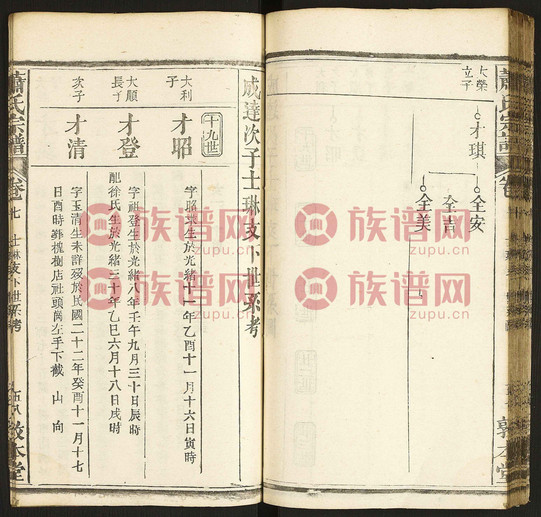 大榮
立子
才琪
全安
全美
蕭氏宗譜
卷
成達次子士琳支下世系考
十九世
大利
子
才昭
字昭琪生於光緒十一年乙酉十一月十六日寅時
大順
長子
才登
字祖登生於光緒八年壬午九月三十日辰時
龍徐氏生於光緒三十年乙巳六月十八日戌時
次子
才清
字玉清生未詳歿於民國二十二年癸酉十一月十七
日酉時葬槐樹店社頭崗左手下截山向
蕭氏宗譜
卷七
士琳支下世系考
敦本堂
族谱网
zupu.cn
族谱网
zupu.cn
族谱网
zupu.cn
族谱网
zupu.cn